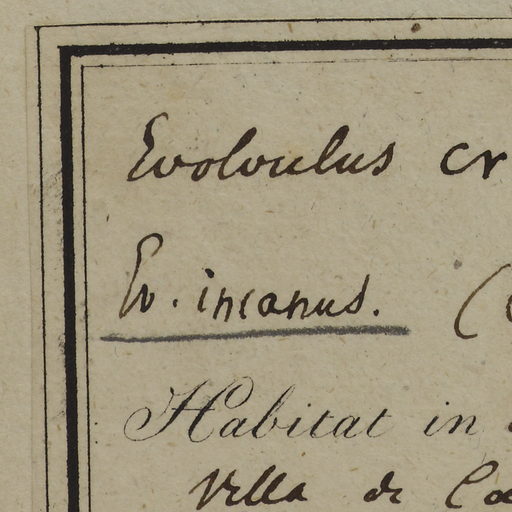 Evolvulus cr
Ev. incanus. (
Habitat in
Villa de Ca